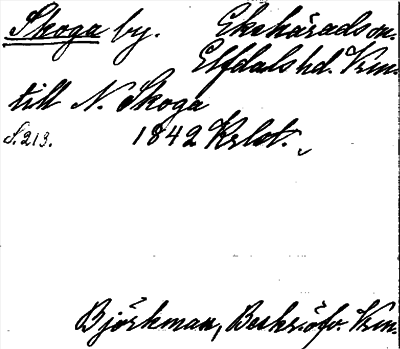 Skoga by. Ekshärads sn.
Elfdals hd. Vrm.
till N. Skoga
S. 213. 1842 Krlot.
Björkman, Beskriöfv. Vrm.